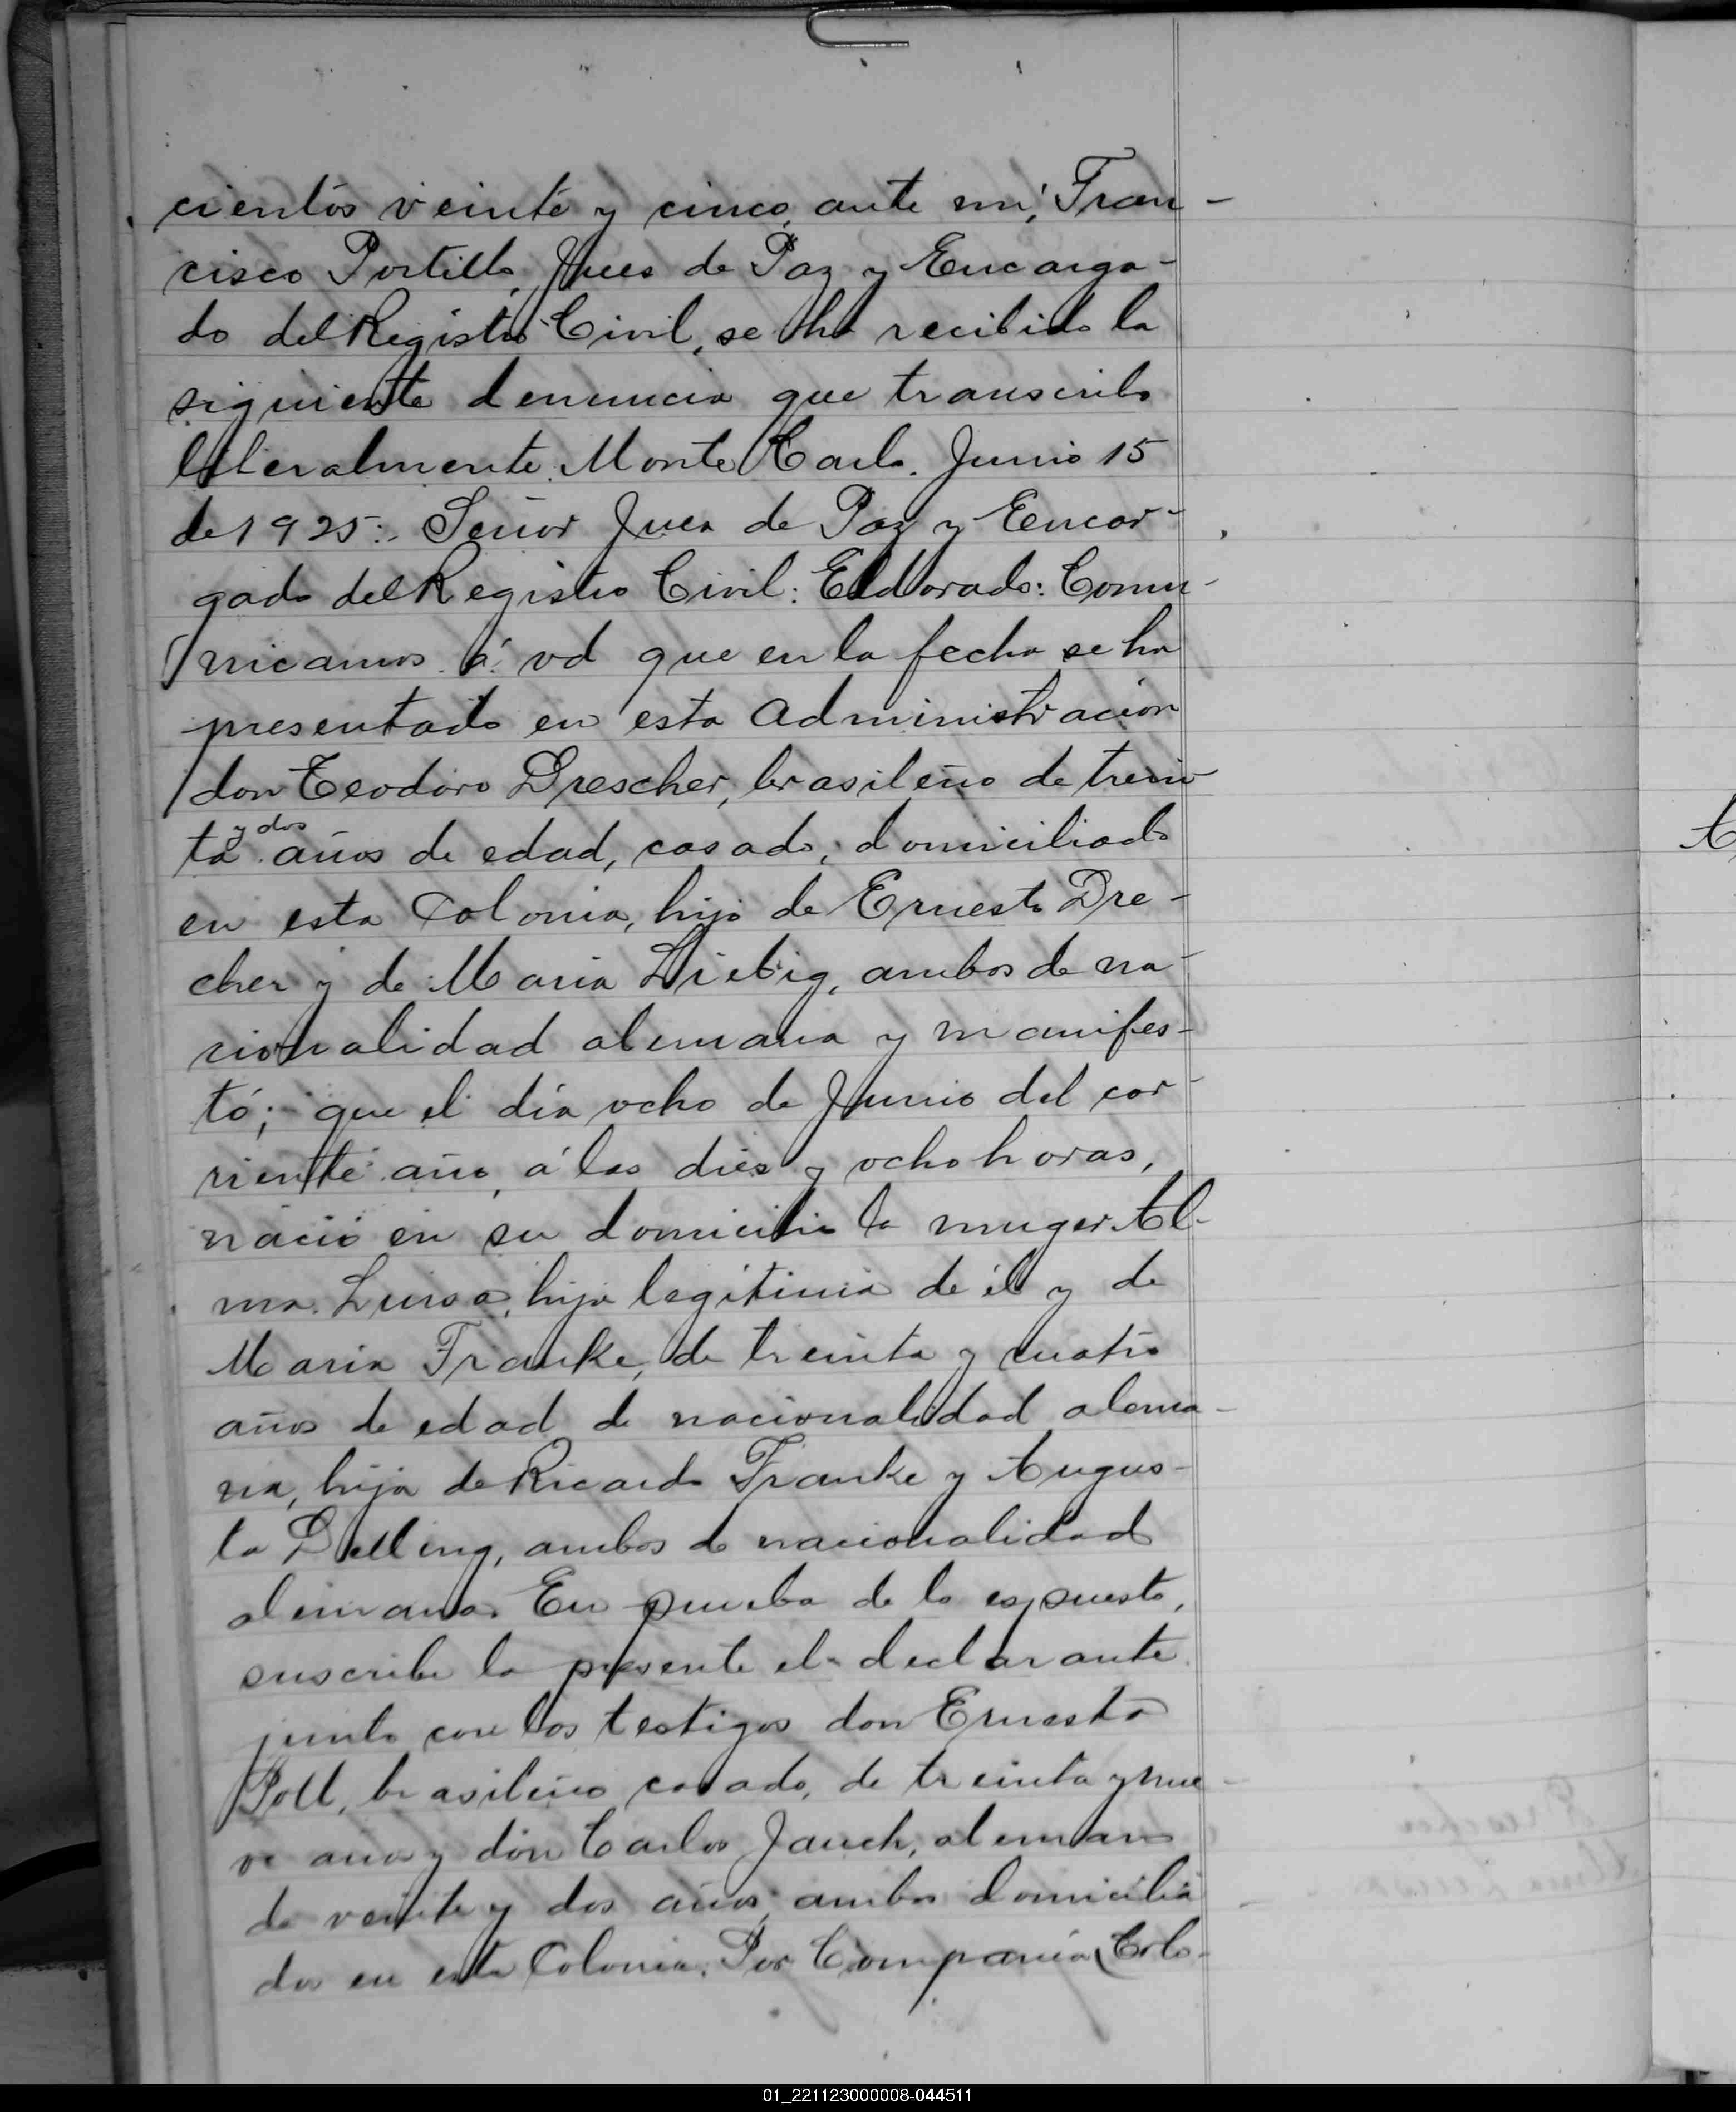 cientos veinte y cinco, ante mi, Fran-
cisco Portillo, Jues de Paz y Encarga-
do del Registro Civil, se ha recibido la
siguiente denuncia que transcribo
literalmente. Monte Carlo. Junio 15
de 1925:. Señor Juez de Paz y Encar-
gado del Registro Civil: Eldorado: Comu-
nicamos á vd que en la fecha se ha
presentado en esta Administración
don Teodoro Drescher, brasileño de trein-
ta y dos años de edad, casado, domiciliado
en esta Colonia, hijo de Ernesto Dre-
cher y de Maria Liebig, ambos de na-
cionalidad alemana y manifes-
tó; que el día ocho de Junio del cor-
riente año, á las dies y ocho horas,
nació en su domicilio la muger Al-
ma Luisa, hija legítima de él y de
Maria Franke, de treinta y cuatro
años de edad de nacionalidad alema-
na, hija de Ricardo Franke y Augus-
ta Delling, ambos de nacionalidad
alemana. En prueba de lo espuesto,
suscribe la presente el declarante
junto con los testigos don Ernesto
Poll, brasileño casado, de treinta y nue-
ve años y don Carlos Jauch, aleman
de veinte y dos años, ambos domicilia
dos en esta Colonia. Por Compania Colo-
01_221123000008-044511